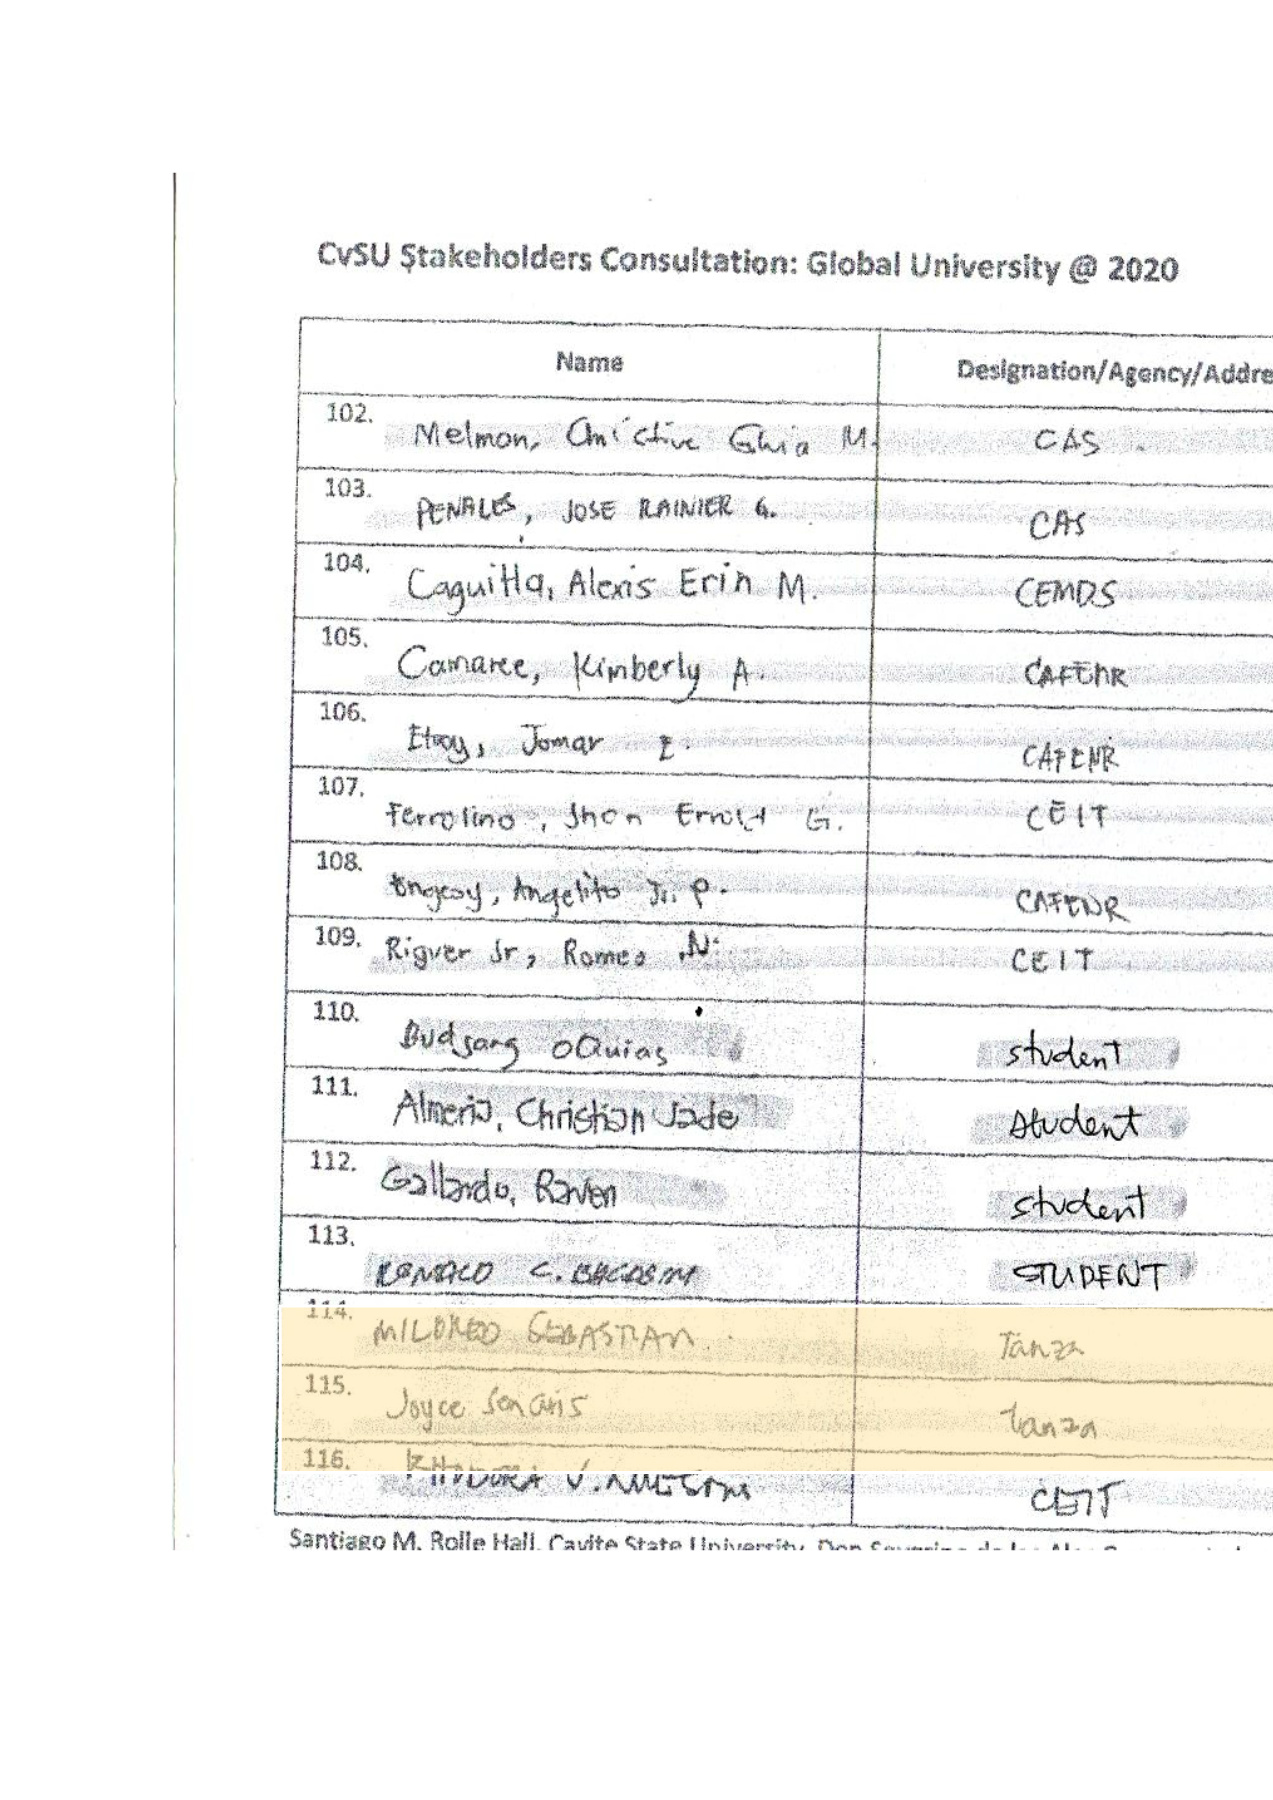 CvSU Stakeholders Consultation: Global University @ 2020
Name Designation/Agency/Addre
102. Melmon, Christine Ghia M. CAS
103. PENALES, JOSE RAINIER G. CAS
104. Caguitla, Alexis Erin M. CEMDS
105. Camaree, Kimberly A. CAFENR
106. Jomar CAFENR
107. Ferrolino, Jhon Errold G. CEIT
108. Angelito Jr. P. CAFENR
109. Riguer Jr, Romeo N. CEIT
110. student
111. Almerio, Christian Jade student
112. Gallardo, Raven student
113. C. STUDENT
114. MILDRED SEBASTIAN Tanza
115. Joyce Tanza
116. V. CEIT
Santiago M. Rolle Hall, Cavite State University, Don Severino de las Alas